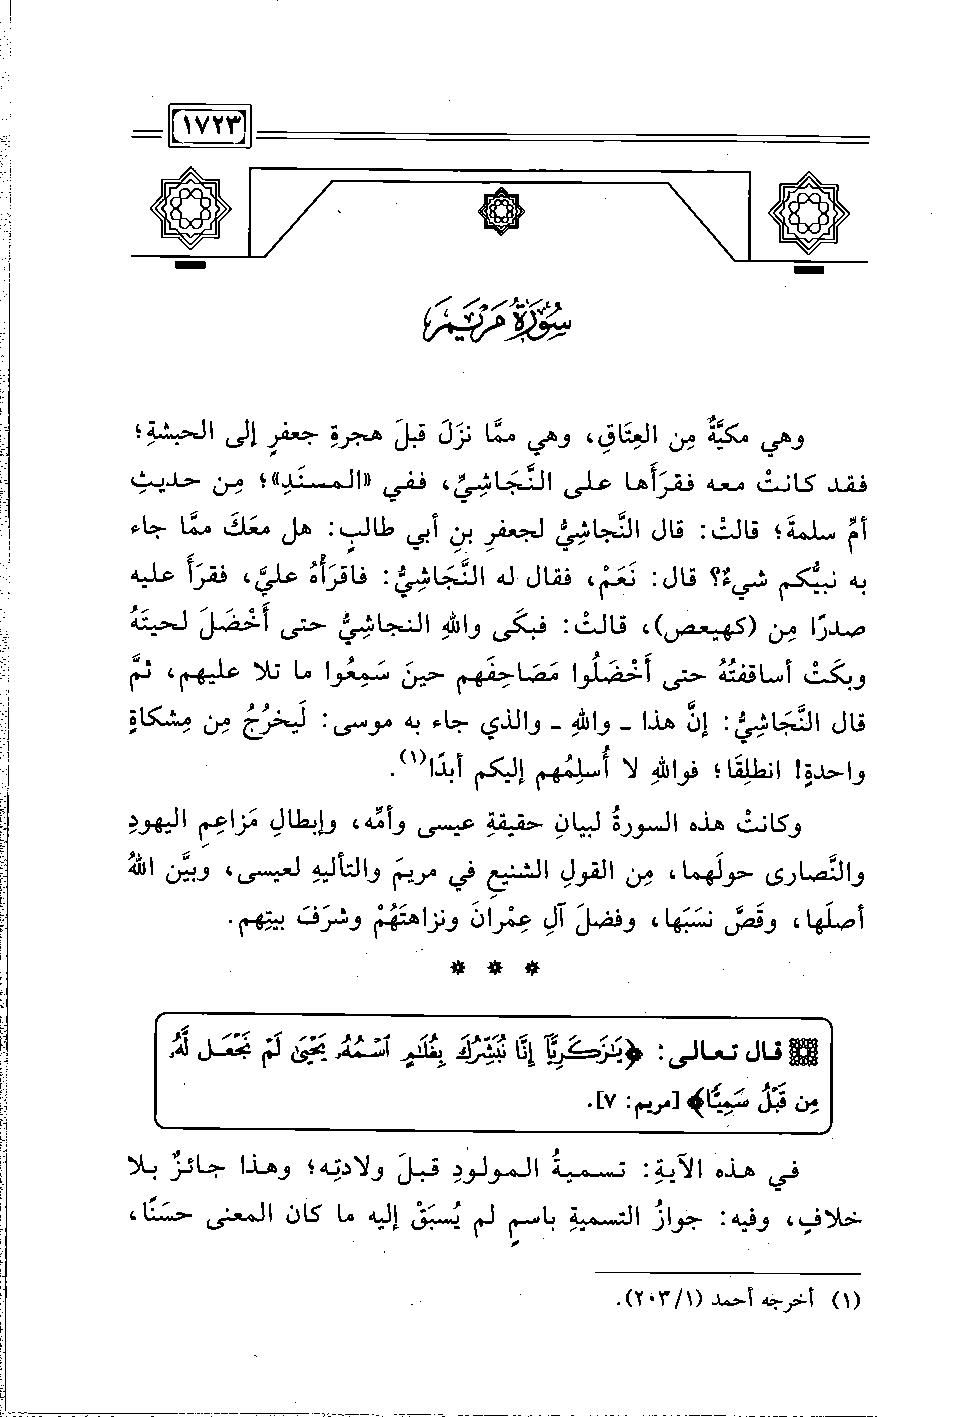 ١٧٢٣
سُورَةُ مَرْيَمَ
وهي مكيَّةٌ مِن العِتَاقِ، وهي ممَّا نزَلَ قبلَ هجرةِ جعفرٍ إلى الحبشةِ؛
فقد كانتْ معه فقرَأَها على النَّجَاشِيِّ، ففي «المسنَدِ»؛ مِن حديثِ
أمِّ سلمةَ؛ قالتْ: قال النَّجاشِيُّ لجعفرِ بنِ أبي طالبٍ: هل معَكَ ممَّا جاء
به نبيُّكم شيءٌ؟ قال: نَعَمْ، فقال له النَّجَاشِيُّ: فاقرَأْهُ عليَّ، فقرَأَ عليه
صدرًا مِن (كهيعص)، قالتْ: فبكَى واللهِ النجاشِيُّ حتى أَخْضَلَ لحيتَهُ
وبكَتْ أساقفتُهُ حتى أَخْضَلُوا مَصَاحِفَهم حينَ سَمِعُوا ما تلا عليهم، ثمَّ
قال النَّجَاشِيُّ: إنَّ هذا ـ واللهِ ـ والذي جاء به موسى: لَيخرُجُ مِن مِشكاةٍ
واحدةٍ! انطلِقَا؛ فواللهِ لا أُسلِمُهم إليكم أبدًا(١).
وكانتْ هذه السورةُ لبيانِ حقيقةِ عيسى وأمِّه، وإبطالِ مَزاعِمِ اليهودِ
والنَّصارى حولَهما، مِن القولِ الشنيعِ في مريمَ والتأليهِ لعيسى، وبيَّن اللهُ
أصلَها، وقَصَّ نسَبَها، وفضلَ آلِ عِمْرانَ ونزاهتَهُمْ وشرَفَ بيتِهم.
* * *
قال تعالى: ﴿يَٰزَكَرِيَّآ إِنَّا نُبَشِّرُكَ بِغُلَٰمٍ ٱسْمُهُۥ يَحْيَىٰ لَمْ نَجْعَل لَّهُۥ
مِن قَبْلُ سَمِيًّا﴾ [مريم: ٧].
في هذه الآيةِ: تسميةُ المولودِ قبلَ ولادتِه؛ وهذا جائزٌ بلا
خلافٍ، وفيه: جوازُ التسميةِ باسمٍ لم يُسبَقْ إليه ما كان المعنى حسَنًا،
(١) أخرجه أحمد (٢٠٣/١).